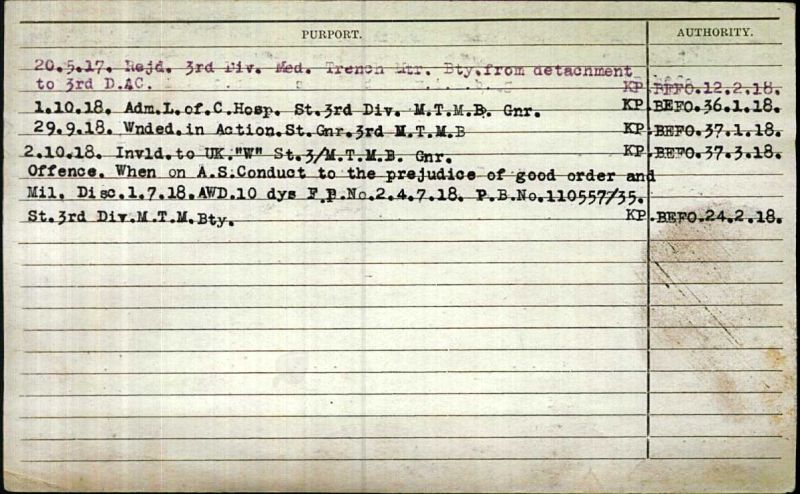 PURPORT. AUTHORITY.
20.5.17. Rejd. 3rd Div. Med. Trench Mtr. Bty.from detachment
to 3rd D.AC. KP.BEFO.12.2.18.
1.10.18. Adm.L.of.C.Hosp. St.3rd Div. M.T.M.B. Gnr. KP.BEFO.36.1.18.
29.9.18. Wnded.in Action.St.Gnr.3rd M.T.M.B KP.BEFO.37.1.18.
2.10.18. Invld.to UK."W" St.3/M.T.M.B. Gnr. KP.BEFO.37.3.18.
Offence. When on A.S.Conduct to the prejudice of good order and
Mil. Disc.1.7.18.AWD.10 dys F.P.No.2.4.7.18. P.B.No.110557/35.
St.3rd Div.M.T.M.Bty. KP.BEFO.24.2.18.